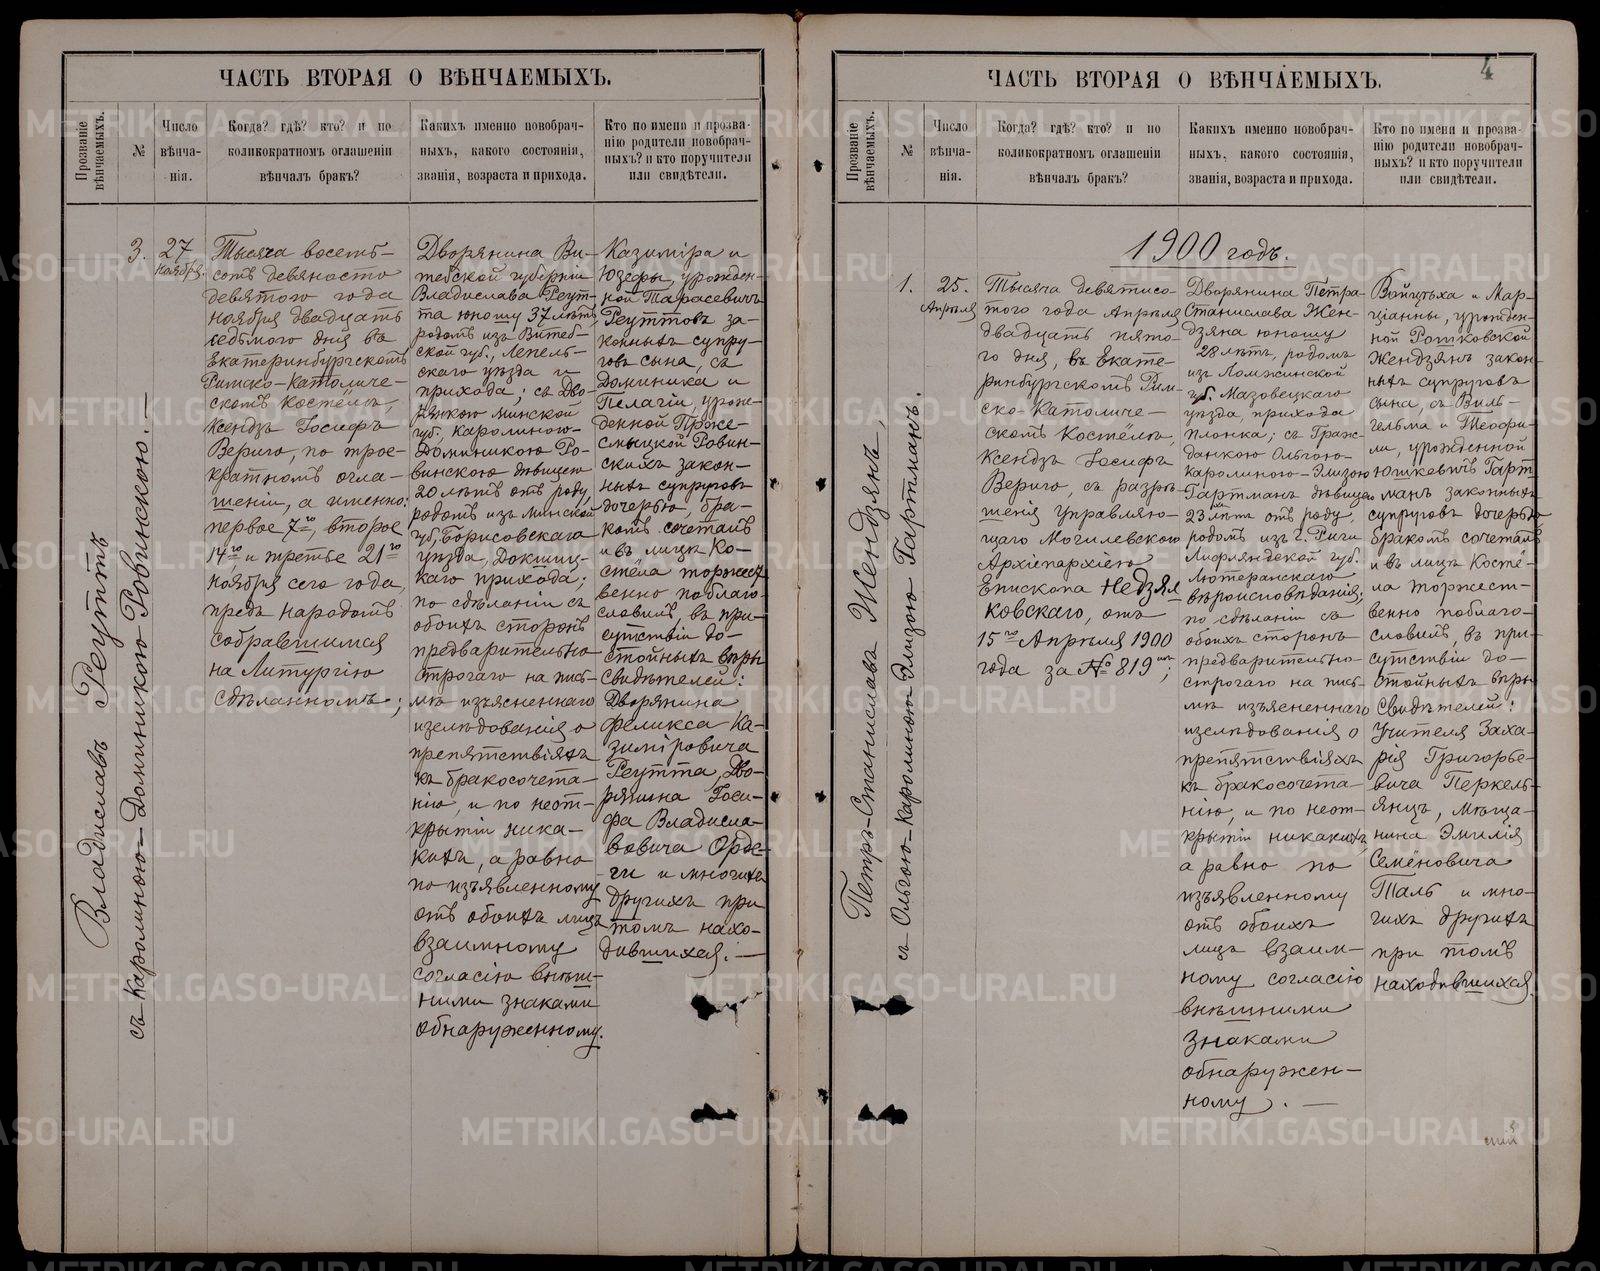 ЧАСТЬ ВТОРАЯ О ВѢНЧАЕМЫХЪ.
Прозваніе
вѣнчаемыхъ.
№
Число
вѣнча-
нія.
Когда? гдѣ? кто? и по
коликократномъ оглашеніи
вѣнчалъ бракъ?
Какихъ именно новобрач-
ныхъ, какого состоянія,
званія, возраста и прихода.
Кто по имени и прозва-
нію родители новобрач-
ныхъ? и кто поручители
или свидѣтели.
Владиславъ Реуттъ
съ Каролиною-Доминикою Ровинскою.—
3.
27
ноября.
Тысяча восемь-
сотъ девяносто
девятого года
ноября двадцать
седьмого дня въ
Екатеринбургскомъ
Римско-Католиче-
скомъ костёлѣ,
Ксендзъ Іосифъ
Вериго, по трое-
кратномъ огла-
шеніи, а именно:
первое 7го, второе
14го и третье 21го
ноября сего года,
предъ народомъ
собравшимся
на Литургію
сдѣланномъ;
Дворянина Ви-
тебской губерніи
Владислава Реут-
та юношу 37 лѣтъ,
родомъ изъ Витеб-
ской губ., Лепель-
скаго уѣзда и
прихода; съ Дво-
рянкою Минской
губ., Каролиною-
Доминикою Ро-
винскою дѣвицею
20 лѣтъ отъ роду,
родомъ изъ Минской
губ. Борисовскаго
уѣзда, Докшиц-
каго прихода;
по сдѣланіи съ
обоихъ сторонъ
предварительно
строгаго на пись-
мѣ изъясненнаго
изслѣдованія о
препятствіяхъ
къ бракосочета-
нію, и по неот-
крытіи ника-
кихъ, а равно
по изъявленному
отъ обоихъ лицъ
взаимному
согласію внѣш-
ними знаками
обнаруженному.
Казиміра и
Юзефы, урожден-
ной Тарасевичъ
Реуттовъ за-
конныхъ супру-
говъ сына, съ
Доминика и
Пелагіи, урож-
денной Прже-
смыцкой Ровин-
скихъ закон-
ныхъ супруговъ
дочерью, бра-
комъ сочеталъ
и въ лицѣ Ко-
стёла торжест-
венно поблаго-
словилъ, въ при-
сутствіи до-
стойныхъ вѣры
свидѣтелей:
Дворянина
Феликса Ка-
зиміровича
Реутта, Дво-
рянина Іоси-
фа Владисла-
вовича Орде-
ги и многихъ
другихъ при
томъ нахо-
дившихся.—
4
ЧАСТЬ ВТОРАЯ О ВѢНЧАЕМЫХЪ.
Прозваніе
вѣнчаемыхъ.
№
Число
вѣнча-
нія.
Когда? гдѣ? кто? и по
коликократномъ оглашеніи
вѣнчалъ бракъ?
Какихъ именно новобрач-
ныхъ, какого состоянія,
званія, возраста и прихода.
Кто по имени и прозва-
нію родители новобрач-
ныхъ? и кто поручители
или свидѣтели.
1900 годъ.
Петръ-Станиславъ Жендзянъ,
съ Ольгою-Каролиною-Элизою Гартманъ.
1.
25.
Апрѣля
Тысяча девятисо-
того года Апрѣля
двадцать пято-
го дня, въ Екате-
ринбургскомъ Рим-
ско-Католиче-
скомъ Костёлѣ,
Ксендзъ Іосифъ
Вериго, съ разрѣ-
шенія управляю-
щаго Могилевскою
Архіепархіею
Епископа Недзял
ковскаго, отъ
15го Апрѣля 1900
года за № 819мъ;
Дворянина Петра
Станислава Жен-
дзяна юношу
28 лѣтъ, родомъ
изъ Ломжинской
губ. Мазовецкаго
уѣзда, прихода
Плонка; съ Граж-
данкою Ольгою-
Каролиною-Элизою
Гартманъ дѣвицею
23 лѣтъ отъ роду,
родомъ изъ г. Риги
Лифляндской губ.
Лютеранскаго
вѣроисповѣданія;
по сдѣланіи съ
обоихъ сторонъ
предварительно
строгаго на пись-
мѣ изъясненнаго
изслѣдованія о
препятствіяхъ
къ бракосочета-
нію, и по неот-
крытіи никакихъ,
а равно по
изъявленному
отъ обоихъ
лицъ взаим-
ному согласію
внѣшними
знаками
обнаружен-
ному. —
Войцѣха и Мар-
ціанны, урожден-
ной Рошковской
Жендзянъ закон-
ныхъ супруговъ
сына, съ Виль-
гельма и Теофи-
ли, урожденной
Юшкевичъ Гарт
манъ законныхъ
супруговъ дочерью
бракомъ сочеталъ
и въ лицѣ Костё-
ла торжест-
венно поблаго-
словилъ, въ при-
сутствіи до-
стойныхъ вѣры
свидѣтелей:
Учителя Заха-
рія Григорье-
вича Перкель-
янцъ, Мѣща-
нина Эмилія
Семёновича
Таль и мно-
гихъ другихъ
при томъ
находившихся.
METRIKI.GASO-URAL.RU